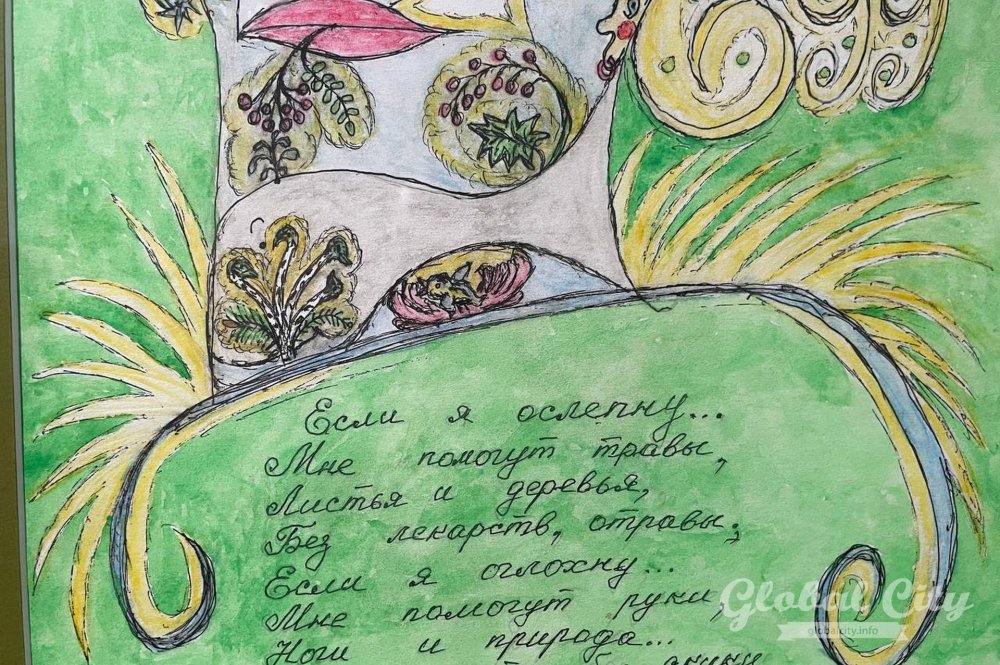 Если я ослепну...
Мне помогут травы,
Листья и деревья,
Без лекарств, отравы;
Если я оглохну...
Мне помогут руки,
Ноги и природа...
Global City
globalcity.info